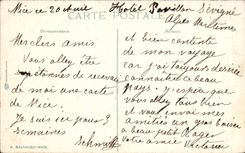 Nice ce 20 Avril Hotel Pavillon Sévigné
Alpes Maritimes
CARTE POSTALE
Correspondance
Mes chers amis
Vous allez être
étonnés de recevoir
de moi une carte
de Nice.
Je suis ici pour 3
semaines
et bien contente
de mon voyage
car j'ai toujours désiré
connaître ce beau
pays. J'espère que
vous allez tous bien
et vous envoie mes
amitiés
à beau petit Roger
Votre amie Victorine